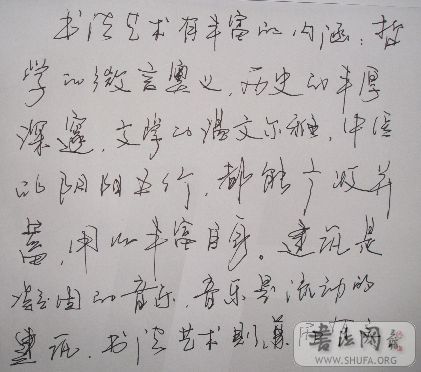 书法艺术有丰富的内涵：哲
学的微言奥义，历史的丰厚
深邃，文学的温文尔雅，中医
的阴阳五行，都能广收并
蓄，用以丰富自身。建筑是
凝固的音乐，音乐是流动的
建筑，书法艺术则
书法网
WWW.SHUFA.ORG